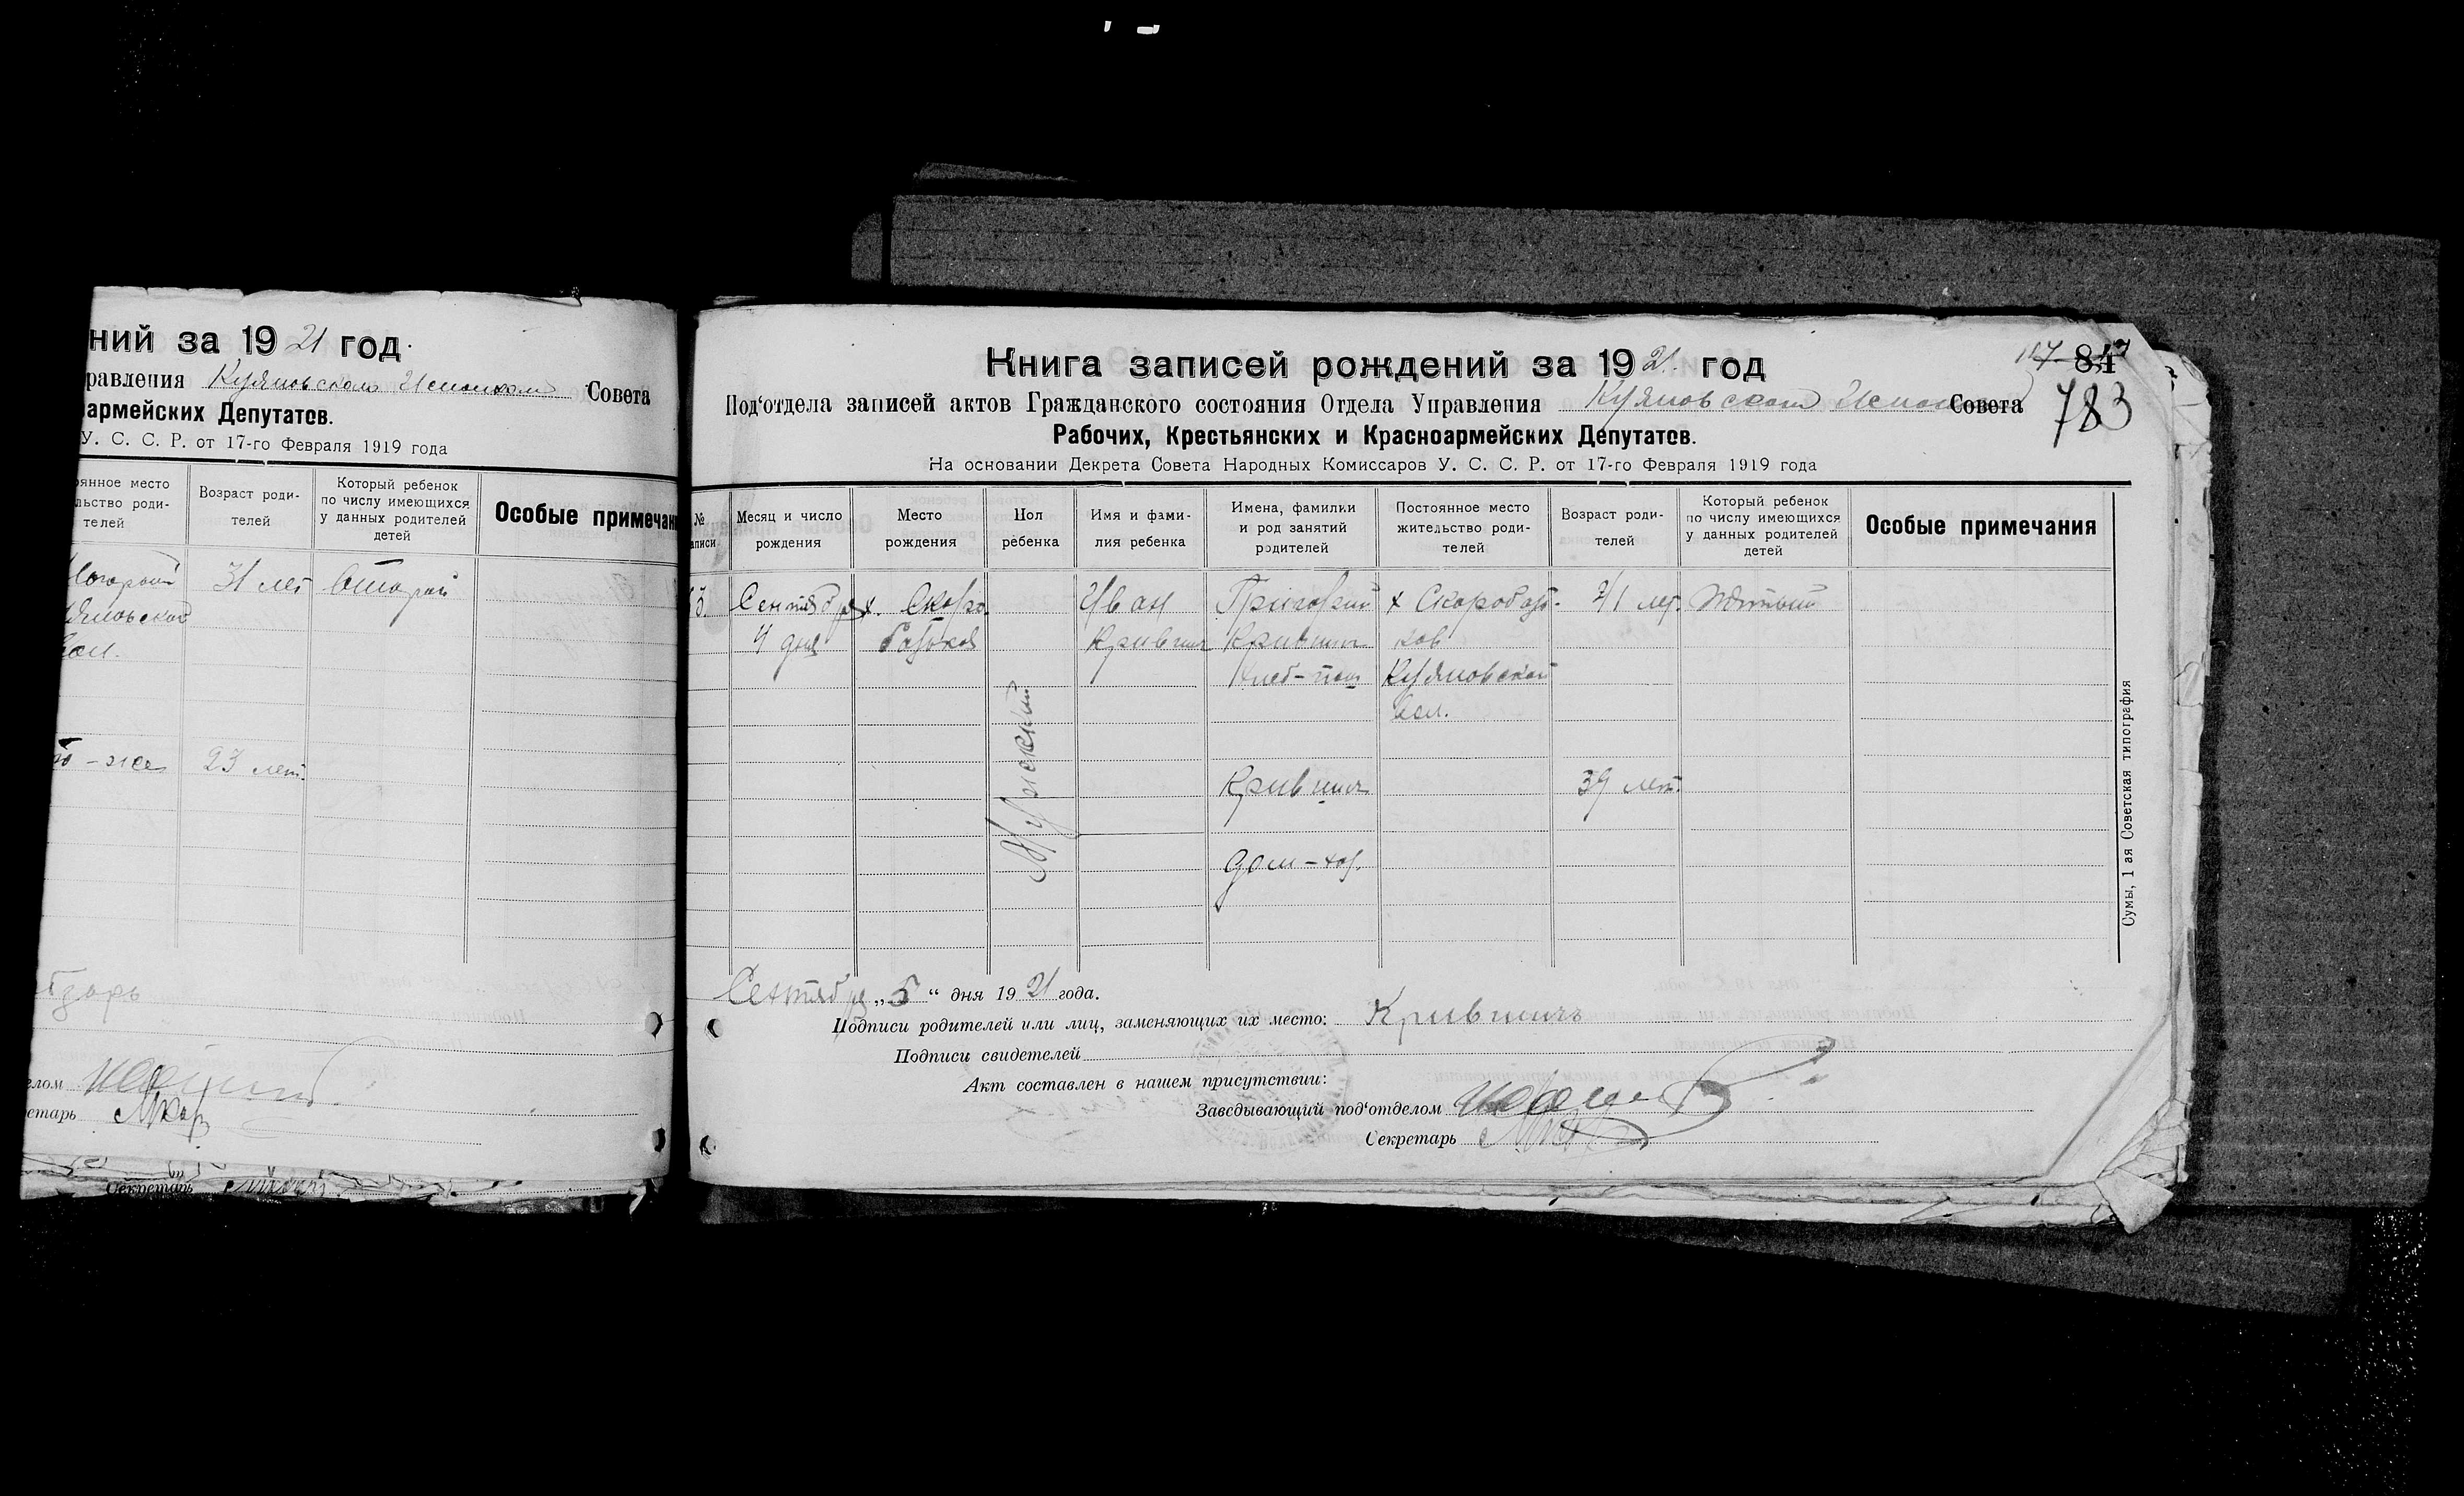 ний за 1921 год.
равления Куяновского Исполком Совета
армейских Депутатов.
У. С. С. Р. от 17-го Февраля 1919 года
янное место
льство роди-
телей
Возраст роди-
телей
Который ребенок
по числу имеющихся
у данных родителей
детей
Особые примечан
31 лет
Куяновской
вол.
то-же
23 лет.
елом
етарь
Секретарь
117 84
783
Книга записей рождений за 1921 год
Под‘отдела записей актов Гражданского состояния Отдела Управления Куяновского Исполкома Совета
Рабочих, Крестьянских и Красноармейских Депутатов.
На основании Декрета Совета Народных Комиссаров У. С. С. Р. от 17-го Февраля 1919 года
№
аписи
Месяц и число
рождения
Место
рождения
Пол
ребенка
Имя и фами-
лия ребенка
Имена, фамилии
и род занятий
родителей
Постоянное место
жительство роди-
телей
Возраст роди-
телей
Который ребенок
по числу имеющихся
у данных родителей
детей
Особые примечания
3.
Сентября
4 дня
х. Скоро-
Мужский
Иван
Крившич
Григорий
Крившич
х Скоробогат-
ков
Куяновской
вол.
41 лет.
Пятый
Крившич
39 лет.
дом-хоз.
Сентября „5“ дня 1921 года.
Подписи родителей или лиц, заменяющих их место: Крившичъ
Подписи свидетелей
Акт составлен в нашем присутствии:
Заведывающий под‘отделом
Секретарь
Сумы, 1 ая Советская типография